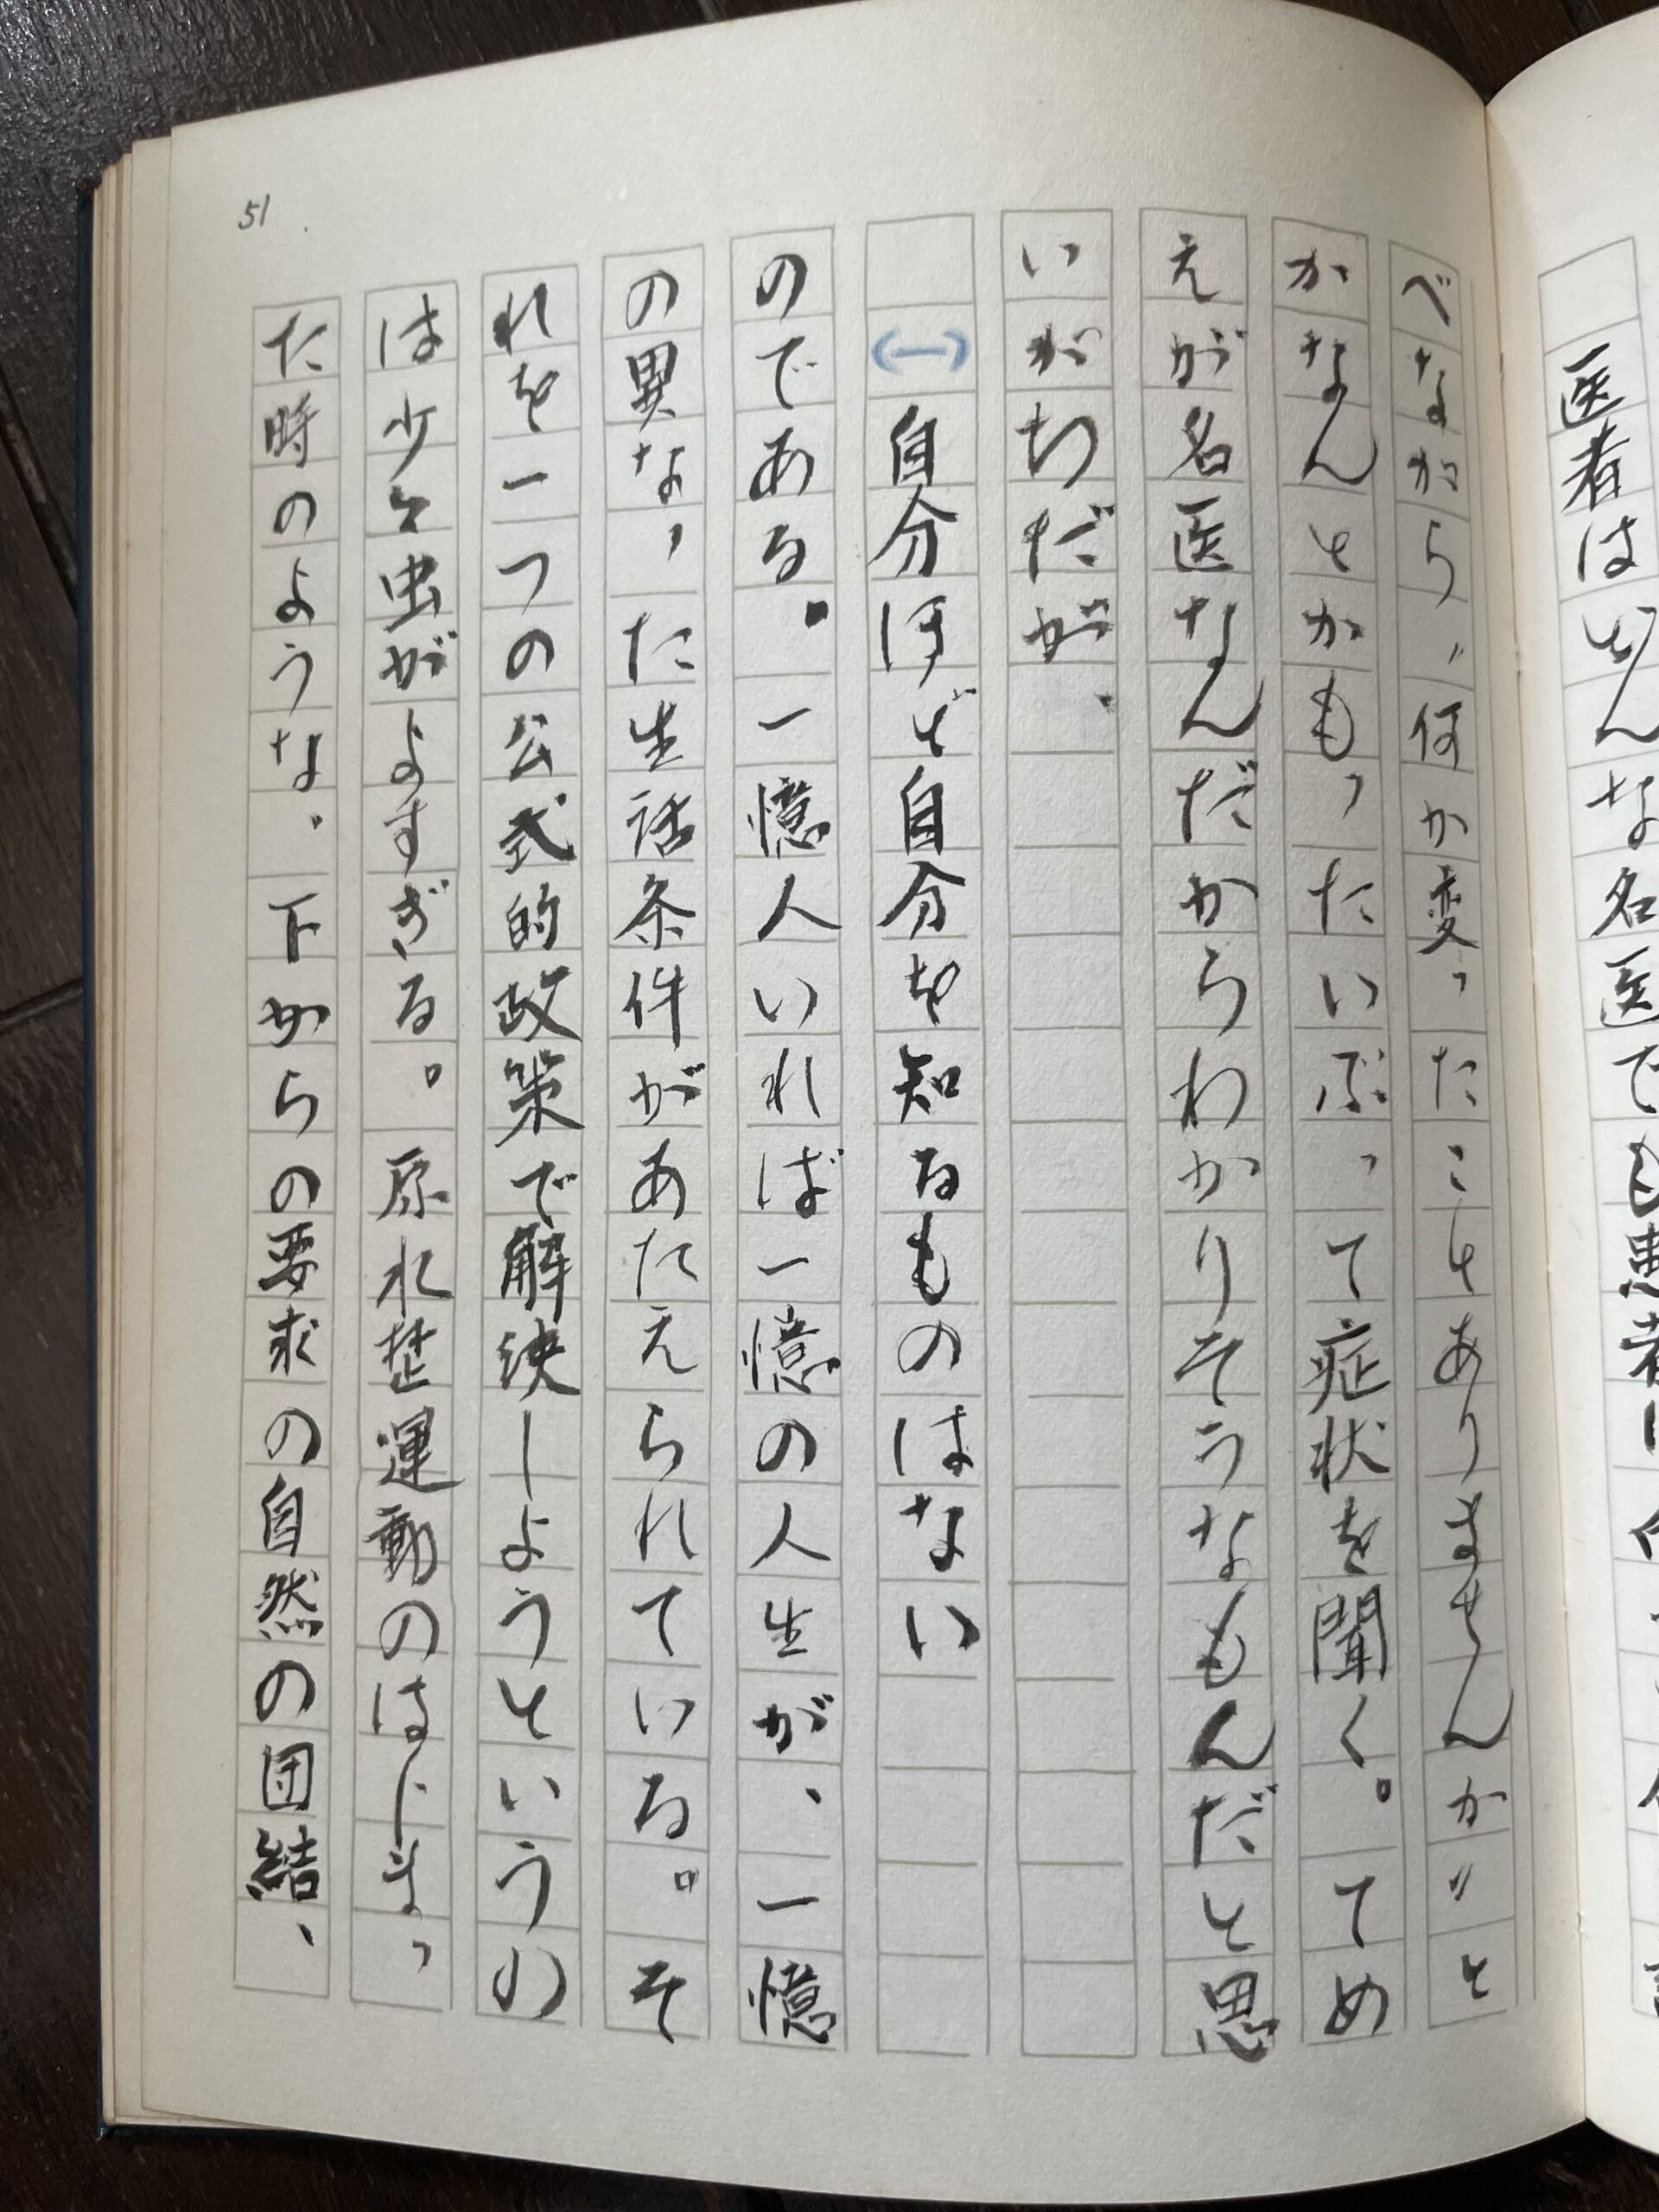 医者はどんな名医でも患者に
べながら〝何か変ったことありませんか〟と
かなんとかもったいぶって症状を聞く。てめ
えが名医なんだからわかりそうなもんだと思
いがちだが、
(一)自分ほど自分を知るものはない
のである。一憶人いれば一憶の人生が、一憶
の異なった生活条件があたえられている。そ
れを一つの公式的政策で解決しようというの
は少々虫がよすぎる。原水禁運動のはじまっ
た時のような、下からの要求の自然の団結、
51